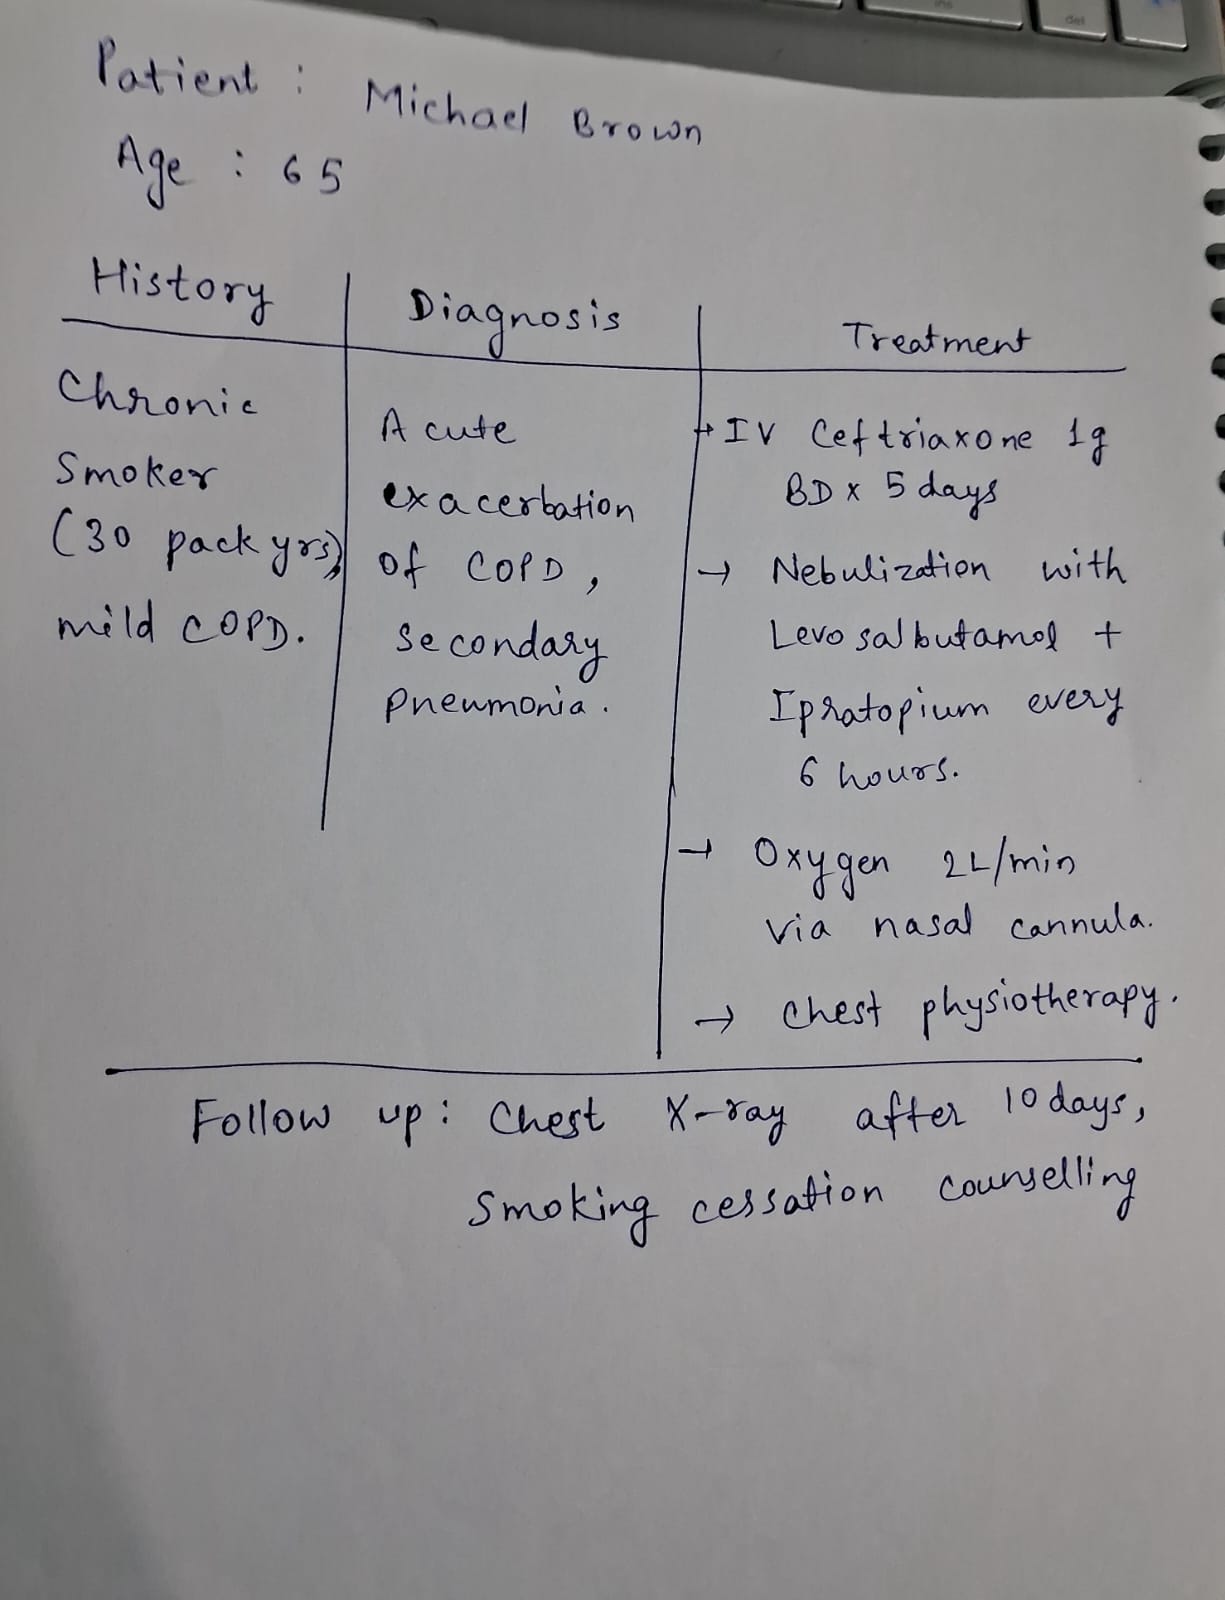 Patient : Michael Brown
Age : 65
History
Chronic
Smoker
(30 pack yrs)
mild COPD.
Diagnosis
Acute
exacerbation
of COPD,
secondary
pneumonia.
Treatment
→ IV Ceftriaxone 1g
BD x 5 days
→ Nebulization with
Levosalbutamol +
Ipratopium every
6 hours.
→ Oxygen 2L/min
via nasal cannula.
→ Chest physiotherapy.
Follow up: Chest X-ray after 10 days,
Smoking cessation counselling
ins
del